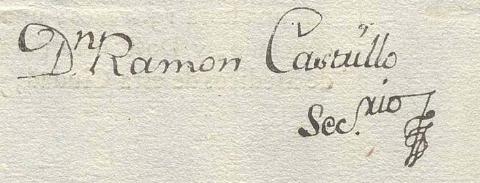 Dⁿ Ramon Castillo
Sec.rio